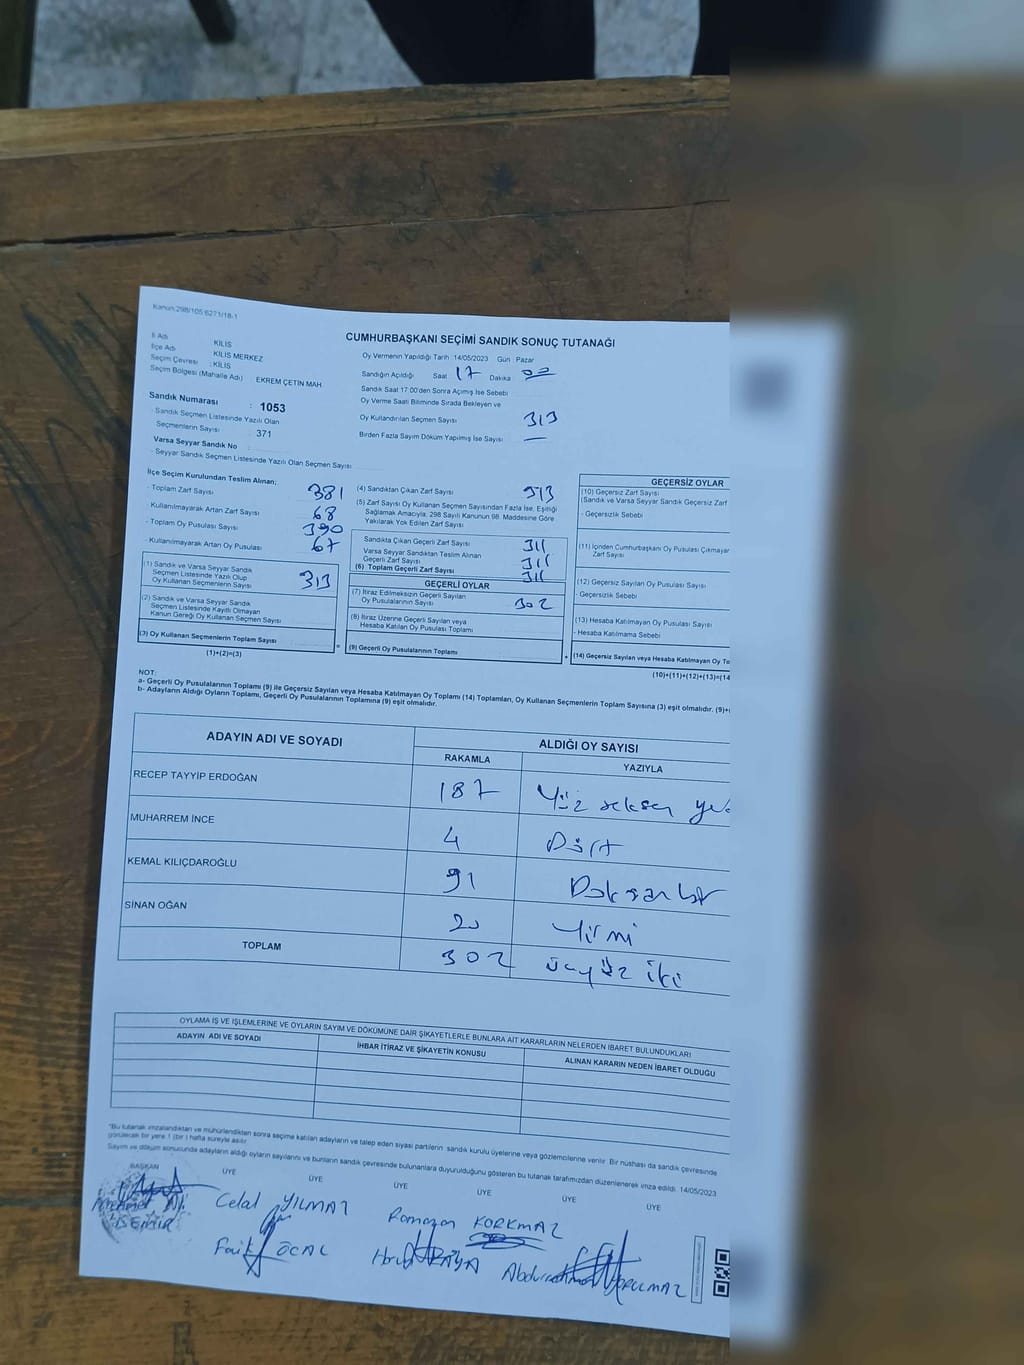 Kanun:298/105 6271/18-1
CUMHURBAŞKANI SEÇİMİ SANDIK SONUÇ TUTANAĞI
İl Adı : KİLİS
İlçe Adı : KİLİS MERKEZ
Seçim Çevresi : KİLİS
Seçim Bölgesi (Mahalle Adı) : EKREM ÇETİN MAH.
Sandık Numarası : 1053
Sandık Seçmen Listesinde Yazılı Olan
Seçmenlerin Sayısı : 371
Varsa Seyyar Sandık No
- Seyyar Sandık Seçmen Listesinde Yazılı Olan Seçmen Sayısı
Oy Vermenin Yapıldığı Tarih :14/05/2023 Gün : Pazar
Sandığın Açıldığı Saat 17 Dakika 00
Sandık Saat 17:00'den Sonra Açılmış İse Sebebi
Oy Verme Saati Bitiminde Sırada Bekleyen ve
Oy Kullandırılan Seçmen Sayısı 313
Birden Fazla Sayım Döküm Yapılmış İse Sayısı —
İlçe Seçim Kurulundan Teslim Alınan;
- Toplam Zarf Sayısı 381
- Kullanılmayarak Artan Zarf Sayısı 68
- Toplam Oy Pusulası Sayısı 390
- Kullanılmayarak Artan Oy Pusulası 67
(1) Sandık ve Varsa Seyyar Sandık
Seçmen Listesinde Yazılı Olup
Oy Kullanan Seçmenlerin Sayısı 313
(2) Sandık ve Varsa Seyyar Sandık
Seçmen Listesinde Kayıtlı Olmayan
Kanun Gereği Oy Kullanan Seçmen Sayısı
(3) Oy Kullanan Seçmenlerin Toplam Sayısı
(1)+(2)=(3)
(4) Sandıktan Çıkan Zarf Sayısı 313
(5) Zarf Sayısı Oy Kullanan Seçmen Sayısından Fazla İse, Eşitliği
Sağlamak Amacıyla, 298 Sayılı Kanunun 98. Maddesine Göre
Yakılarak Yok Edilen Zarf Sayısı
Sandıkta Çıkan Geçerli Zarf Sayısı 311
Varsa Seyyar Sandıktan Teslim Alınan
Geçerli Zarf Sayısı 311
(6) Toplam Geçerli Zarf Sayısı 311
GEÇERLİ OYLAR
(7) İtiraz Edilmeksizin Geçerli Sayılan
Oy Pusulalarının Sayısı 302
(8) İtiraz Üzerine Geçerli Sayılan veya
Hesaba Katılan Oy Pusulası Toplamı
(9) Geçerli Oy Pusulalarının Toplamı
GEÇERSİZ OYLAR
(10) Geçersiz Zarf Sayısı
(Sandık ve Varsa Seyyar Sandık Geçersiz Zarf
- Geçersizlik Sebebi
(11) İçinden Cumhurbaşkanı Oy Pusulası Çıkmayan
Zarf Sayısı
(12) Geçersiz Sayılan Oy Pusulası Sayısı
- Geçersizlik Sebebi
(13) Hesaba Katılmayan Oy Pusulası Sayısı
- Hesaba Katılmama Sebebi
(14) Geçersiz Sayılan veya Hesaba Katılmayan Oy To
(10)+(11)+(12)+(13)=(14
NOT:
a- Geçerli Oy Pusulalarının Toplamı (9) ile Geçersiz Sayılan veya Hesaba Katılmayan Oy Toplamı (14) Toplamları, Oy Kullanan Seçmenlerin Toplam Sayısına (3) eşit olmalıdır. (9)+(
b- Adayların Aldığı Oyların Toplamı, Geçerli Oy Pusulalarının Toplamına (9) eşit olmalıdır.
ADAYIN ADI VE SOYADI ALDIĞI OY SAYISI
RAKAMLA YAZIYLA
RECEP TAYYİP ERDOĞAN 187 Yüz seksen ye
MUHARREM İNCE 4 Dört
KEMAL KILIÇDAROĞLU 91 Doksan bir
SİNAN OĞAN 20 Yirmi
TOPLAM 302 üçyüz iki
OYLAMA İŞ VE İŞLEMLERİNE VE OYLARIN SAYIM VE DÖKÜMÜNE DAİR ŞİKAYETLERLE BUNLARA AİT KARARLARIN NELERDEN İBARET BULUNDUKLARI
ADAYIN ADI VE SOYADI İHBAR İTİRAZ VE ŞİKAYETİN KONUSU ALINAN KARARIN NEDEN İBARET OLDUĞU
*Bu tutanak imzalandıktan ve mühürlendikten sonra seçime katılan adayların ve talep eden siyasi partilerin sandık kurulu üyelerine veya gözlemcilerine verilir. Bir nüshası da sandık çevresinde
görülecek bir yere 1 (bir) hafta süreyle asılır.
Sayım ve döküm sonucunda adayların aldığı oyların sayılarını ve bunların sandık çevresinde bulunanlara duyurulduğunu gösteren bu tutanak tarafımızdan düzenlenerek imza edildi. 14/05/2023
BAŞKAN ÜYE ÜYE ÜYE ÜYE ÜYE ÜYE
DEMİR
Celal YILMAZ
Ramazan KORKMAZ
Faik ÖCAL